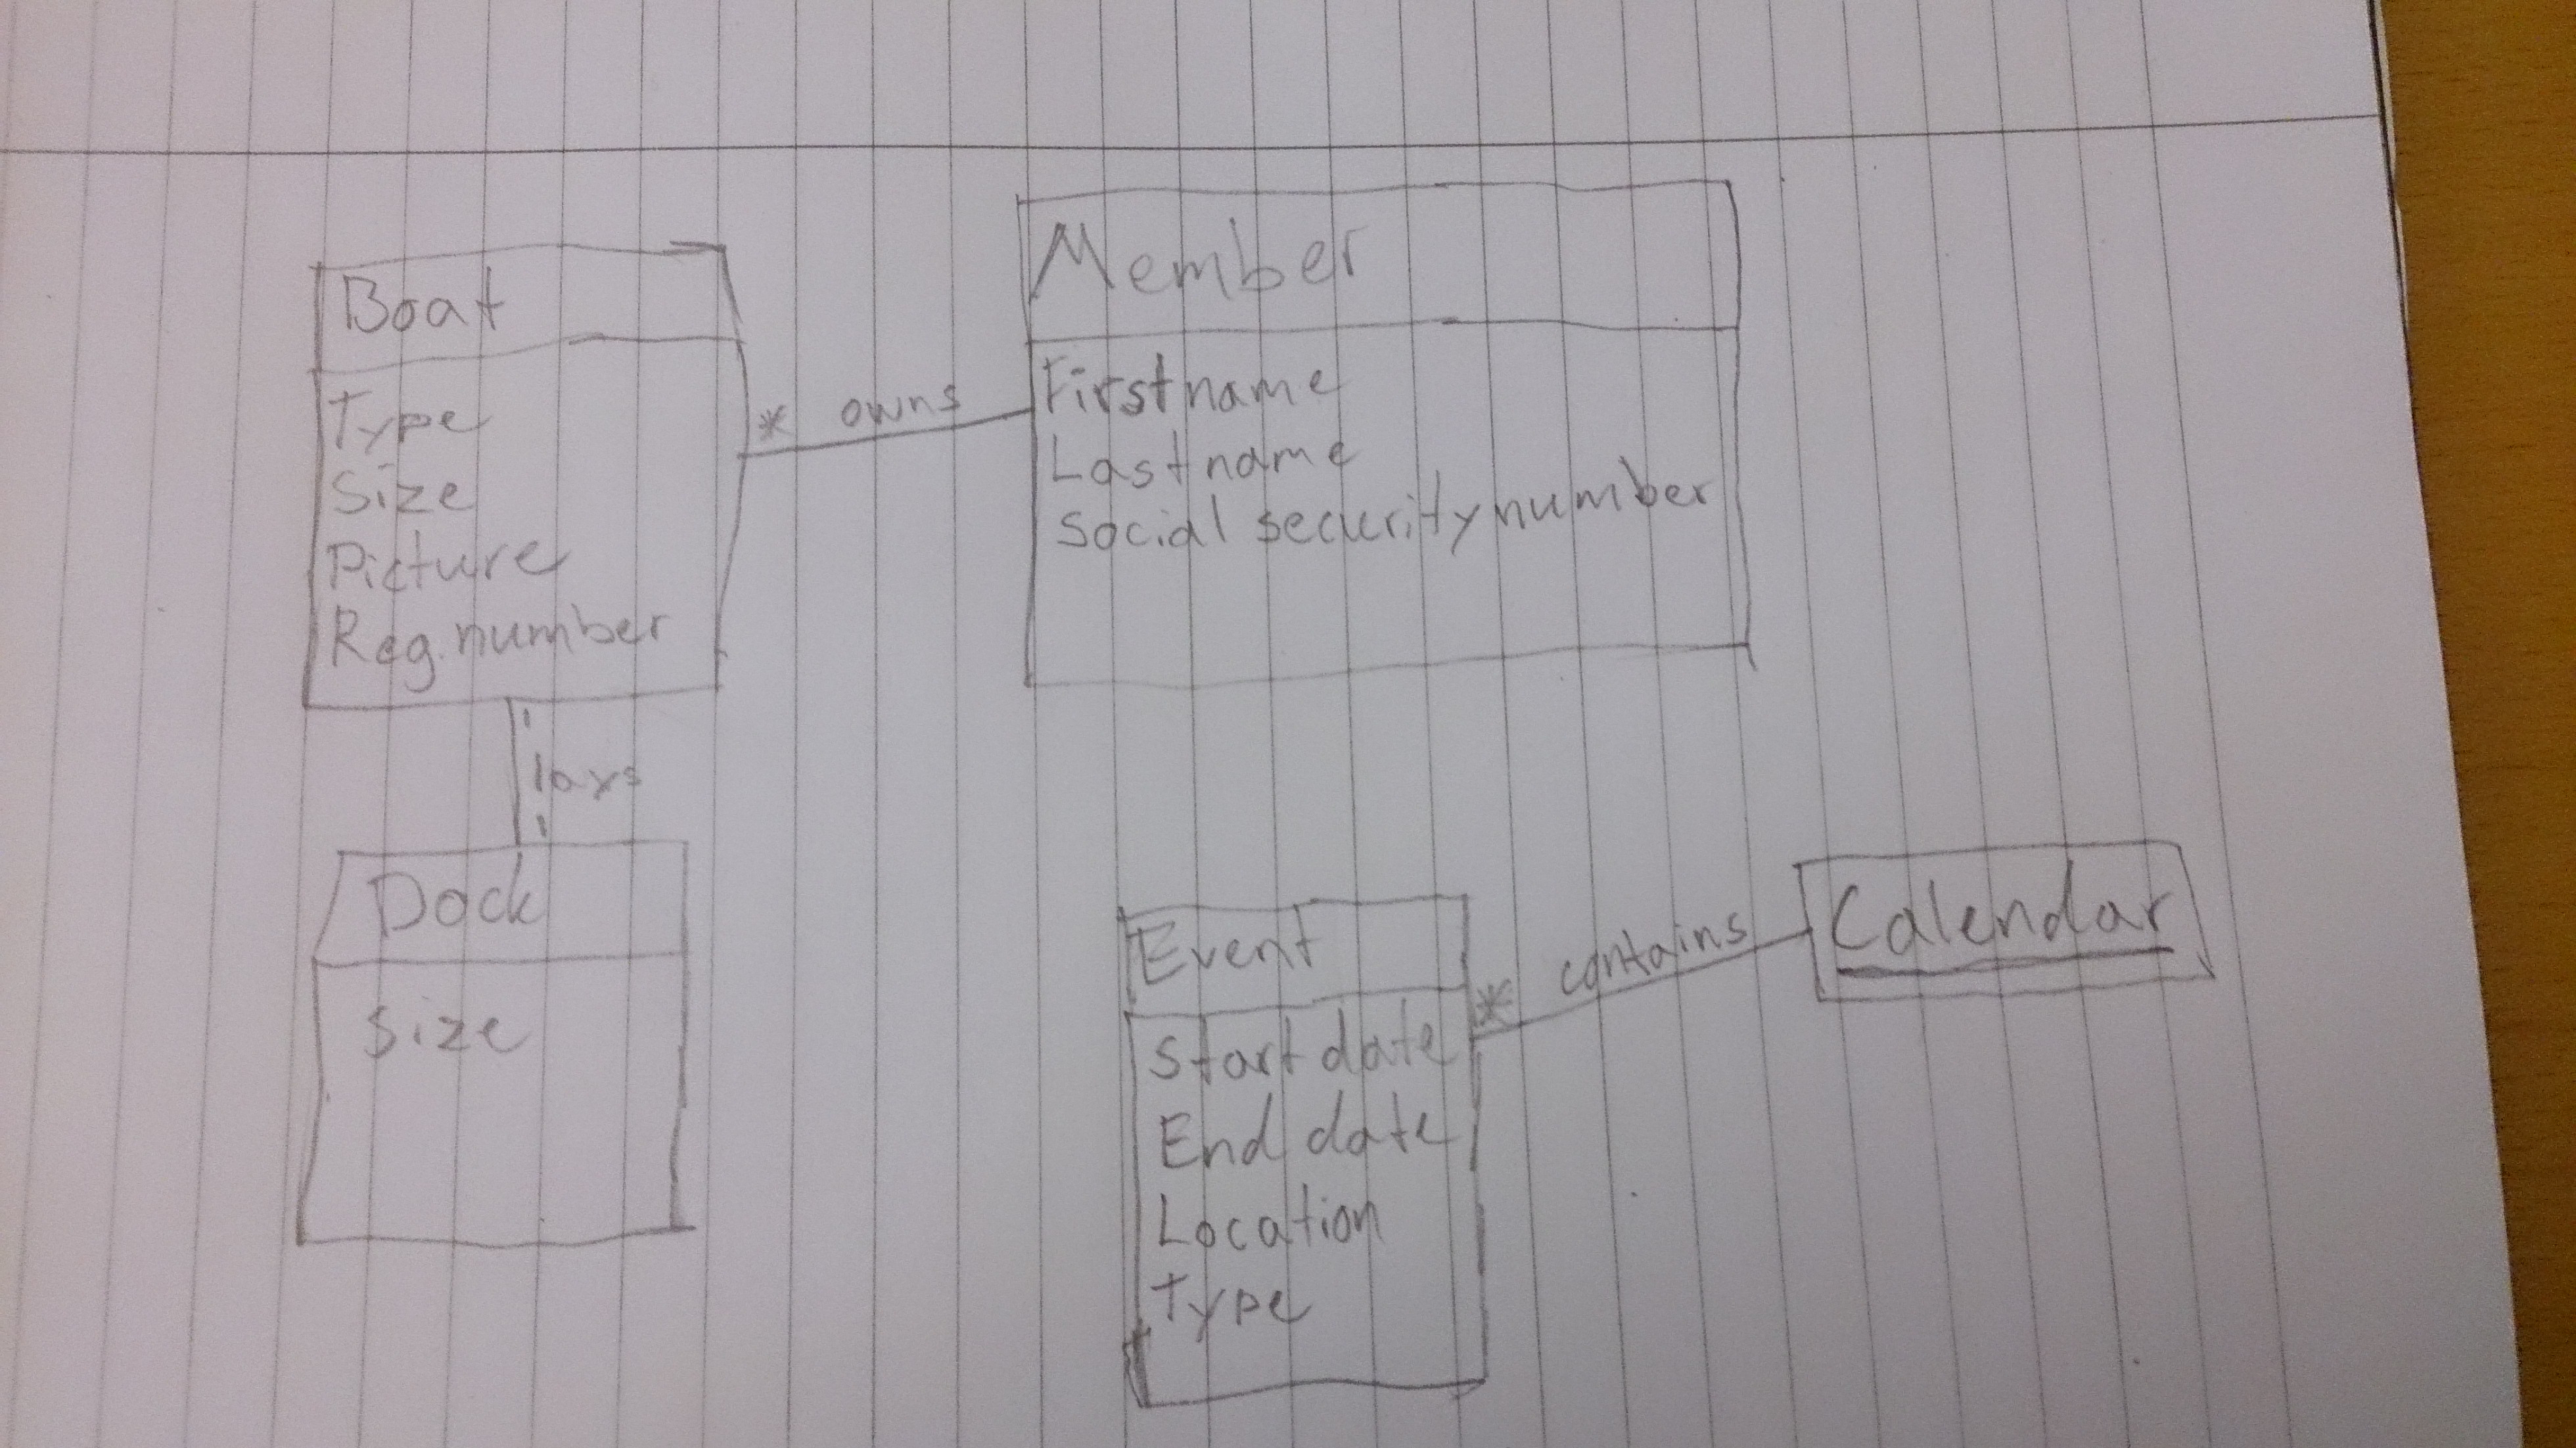 Boat
Type
Size
Picture
Reg. number
* owns
Member
First name
Last name
Social security number
1
lays
1
Dock
Size
Event
Start date
End date
Location
Type
* contains
Calendar